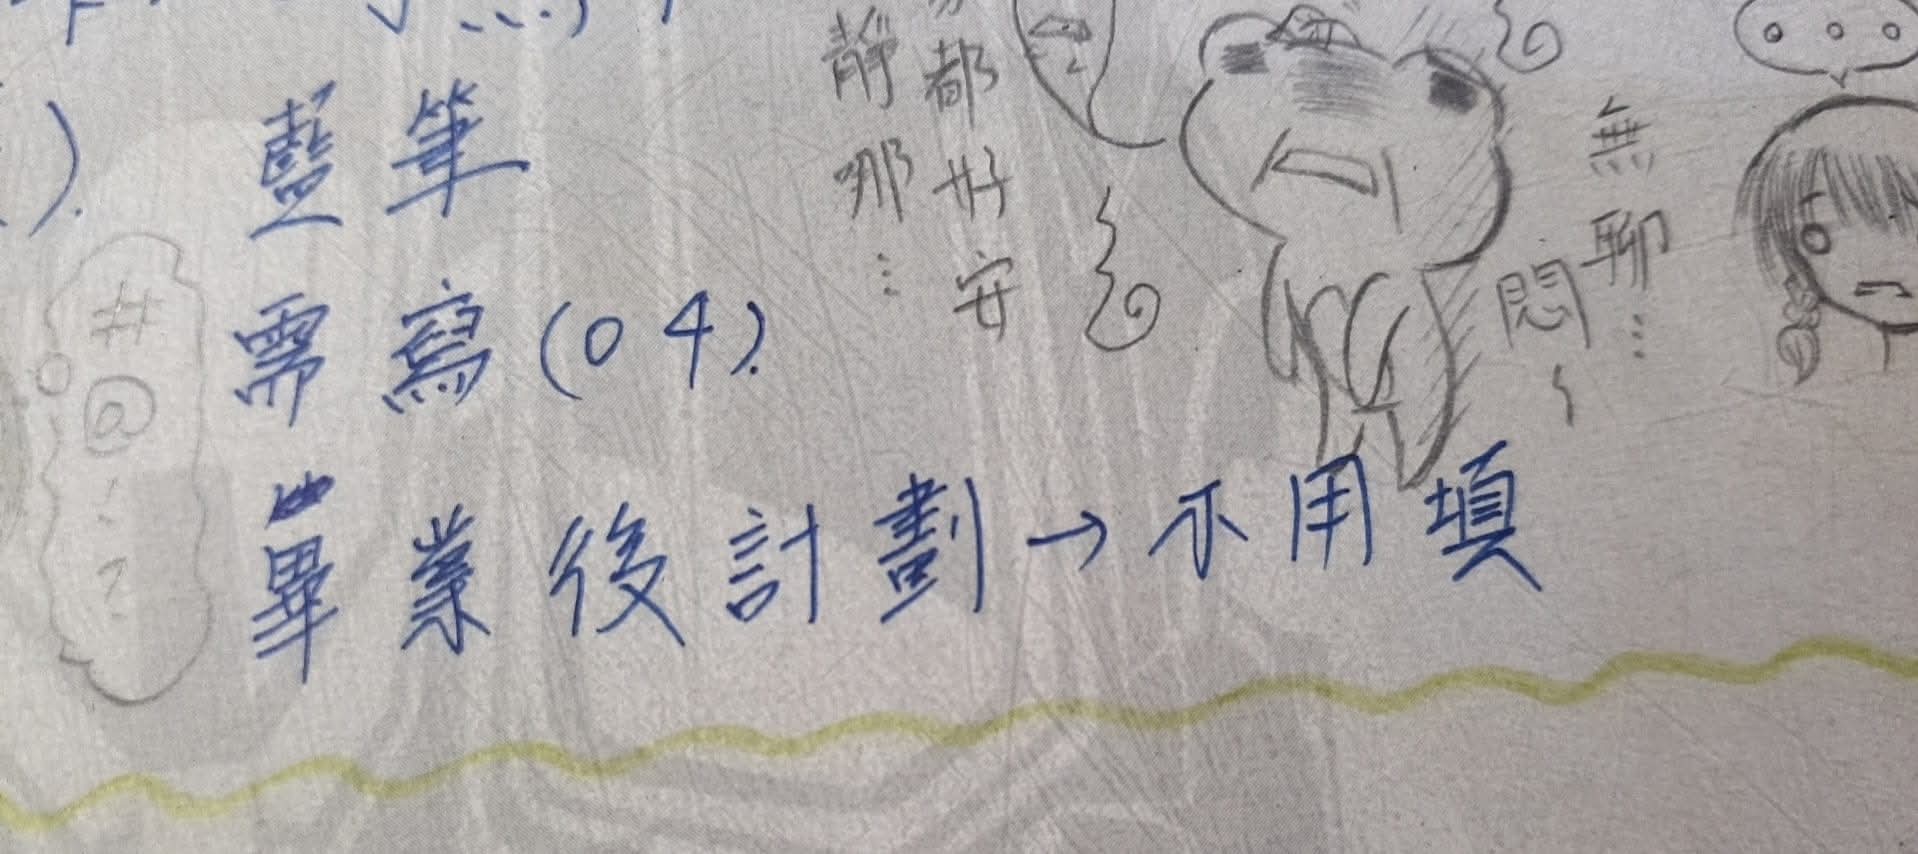 藍筆
需寫(04).
畢業後計劃→不用填
都好安
靜哪…
無聊…
悶~
#
@
!
?